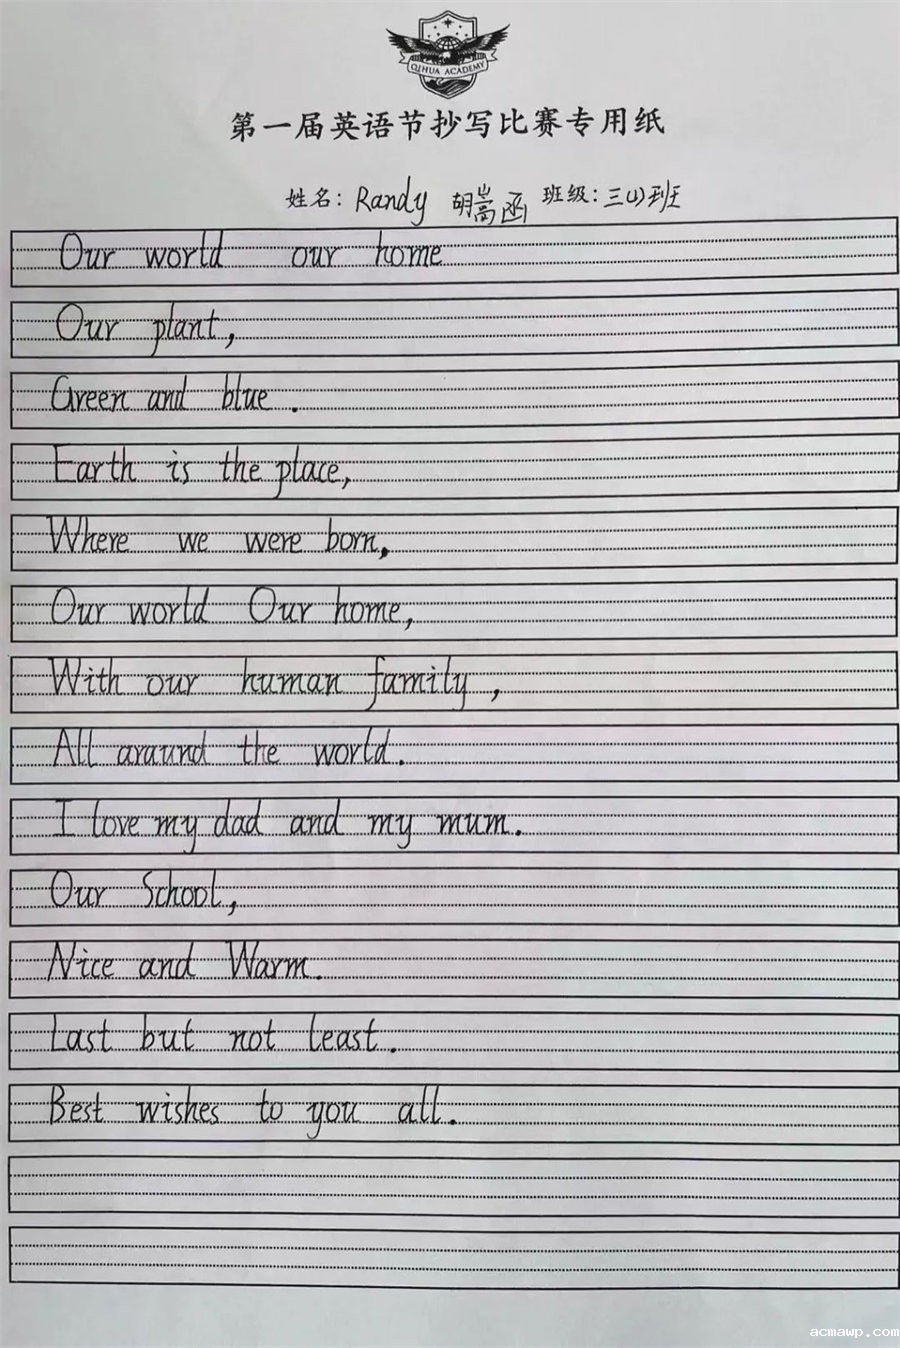 QIHUA ACADEMY
第一届英语节抄写比赛专用纸
姓名: Randy 胡嵩函 班级: 三(1)班
Our world our home
Our plant,
Green and blue.
Earth is the place,
Where we were born,
Our world Our home,
With our human family,
All araund the world.
I love my dad and my mum.
Our School,
Nice and Warm.
Last but not least.
Best wishes to you all.
acmawp.com